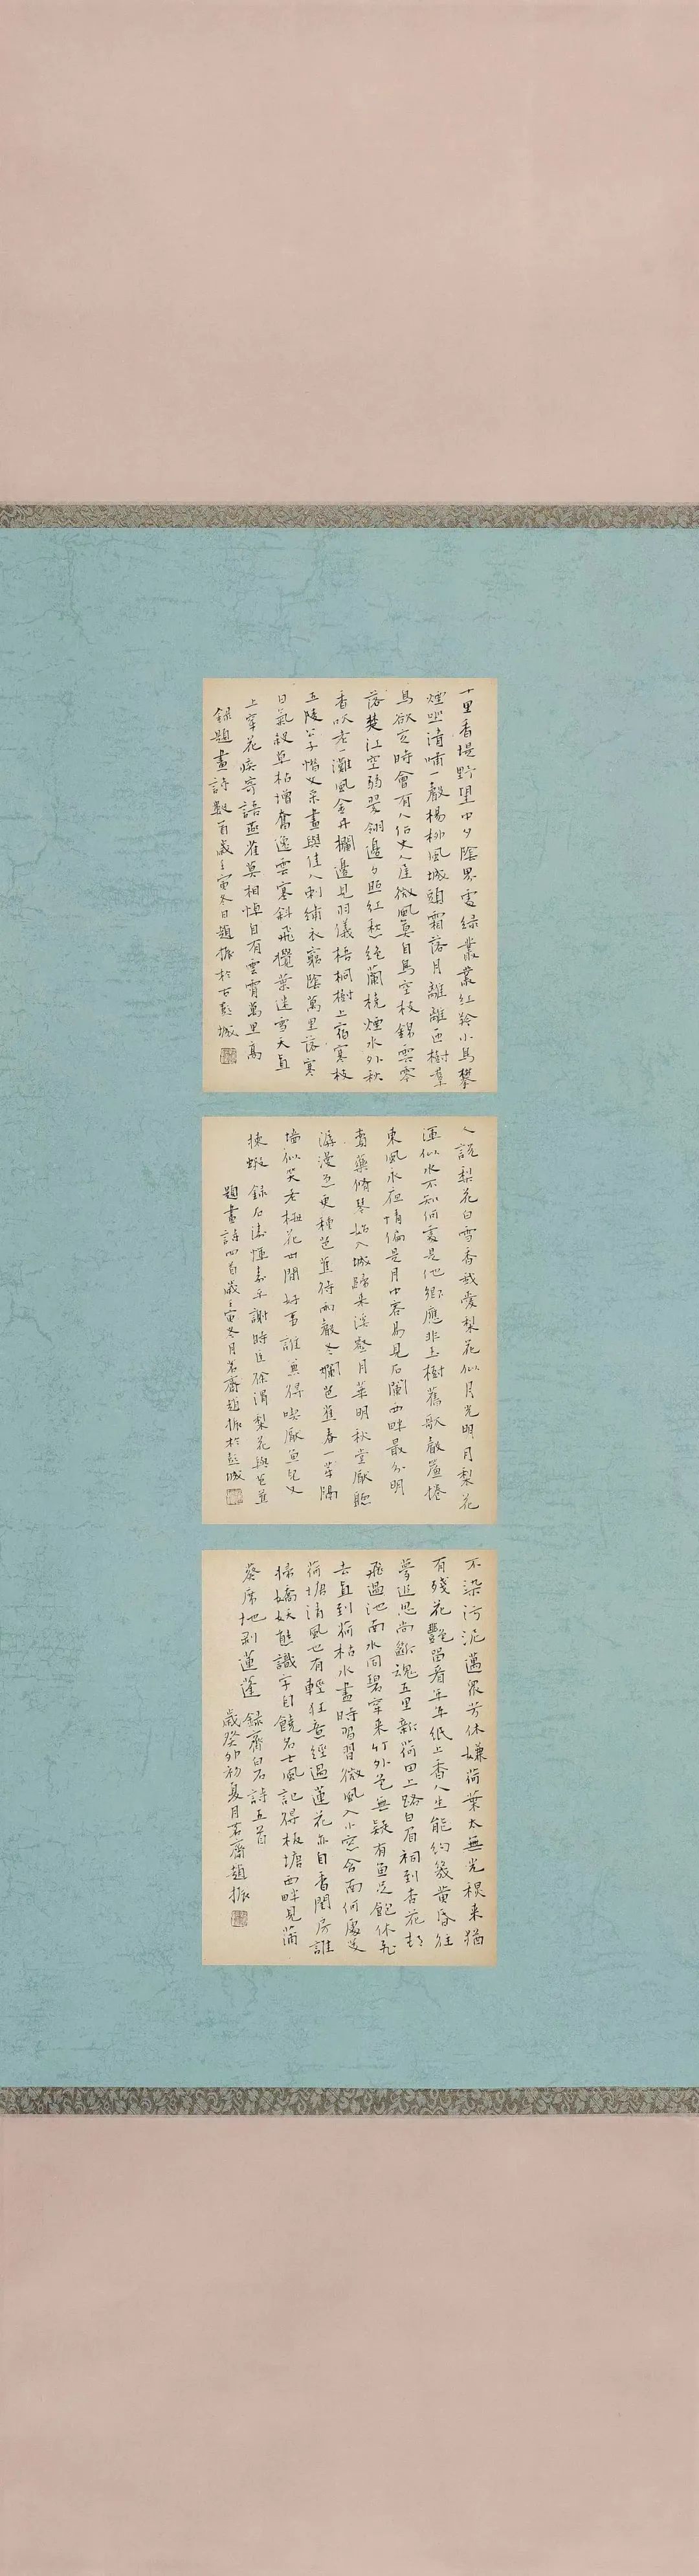 十里香堤野望中夕陰界處綠叢叢紅矜小鳥攀
煙坐清嘯一聲楊柳風城頭霜落月離離匝樹羣
鳥欲定時會有人 微風莫自鳥空枝錦雲零
落楚江空弱翠翎邊夕照紅愁絕蘭橈煙水外秋
香吹老一灘風金井欄邊見羽儀梧桐樹上宿寒枝
五陵公子憐文采畫與佳人刺繡衣窮陰萬里落寒
日氣殺草枯增奮逸雲寒斜飛攪葉迷雪天直
上穿花疾寄語燕雀莫相啅自有雲霄萬里高
錄題畫詩數首歲壬寅冬日趙振於古彭城
人說梨花白雪香我愛梨花似月光明月梨花
渾似水不知何處是他鄉應非玉樹舊歌聲簾捲
東風永夜情偏是月中容易見石闌西畔最分明
賣藥脩琴始入城歸來溪壑月華明秋堂厭聽
潺湲急更種芭蕉待雨聲冬爛芭蕉春一芽隔
墙似笑老梅花世間好事誰兼得吃厭魚兒又
揀蝦 錄石濤惲壽平謝時臣徐渭梨花與芭蕉
題畫詩四首歲壬寅冬月若齋趙振於彭城
不染污泥邁衆芳休嫌荷葉太無光根來猶
有殘花艷留看年年紙上香人生能約幾黃昏往
夢追思尚斷魂五里新荷田上路白眉祠到杏花邨
飛過池面水同碧穿來竹外色無疑有魚足飽休飛
去直到荷枯水盡時習習微風入小窓舍南何處芰
荷塘清風也有輕狂意經過蓮花亦自香閨房誰
掃嬌妖態識字自饒名士風記得板塘西畔見蒲
葵席地剥蓮蓬 錄齊白石詩五首
歲癸卯初夏月若齋趙振